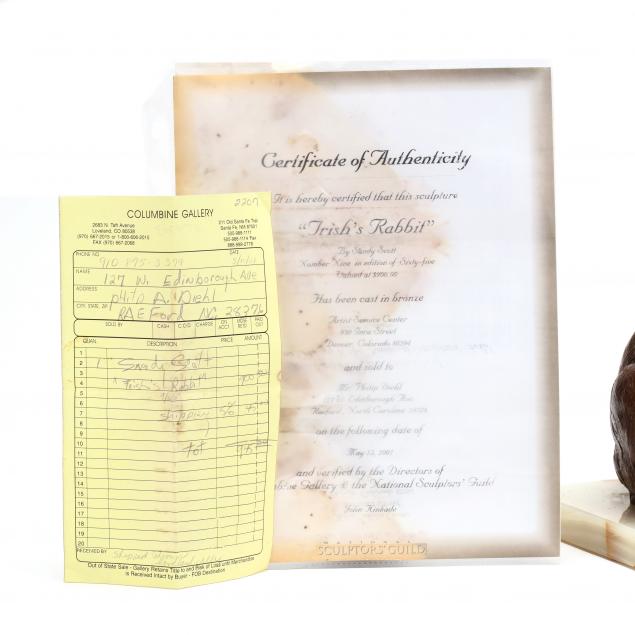 COLUMBINE GALLERY
2207
2683 N. Taft Avenue
Loveland, CO 80538
(970) 667-2015 or 1-800-606-2015
FAX (970) 667-2068
211 Old Santa Fe Trail
Santa Fe, NM 87501
505-988-1111
PHONE NO.
DATE
NAME
127 W. Edinborough Ave
ADDRESS
Philip A. Diehl
CITY, STATE, ZIP
RAEFord NC 28376
SOLD BY
CASH
C.O.D.
CHARGE
ON ACCT.
MDSE RETD
PAID OUT
QUAN.
DESCRIPTION
PRICE
AMOUNT
1
2
3
4
5
6
7
8
9
10
11
12
13
14
15
16
17
18
19
20
Sandy Scott
"Trish's Rabbit"
shipping
tot
RECEIVED BY
Out of State Sale - Gallery Retains Title to and Risk of Loss until Merchandise
is Received Intact by Buyer - FOB Destination
Certificate of Authenticity
It is hereby certified that this sculpture
"Trish's Rabbit"
By Sandy Scott
Number Nine in edition of Sixty-five
Valued at $900.00
Has been cast in bronze
Artist Service Center
Denver, Colorado
and sold to
Mr. Philip Diehl
127 W. Edinborough Ave.
Raeford, North Carolina 28376
on the following date of
May 13, 2001
and verified by the Directors of
Gallery & the National Sculptors' Guild
John Kinkade
NATIONAL
SCULPTORS' GUILD